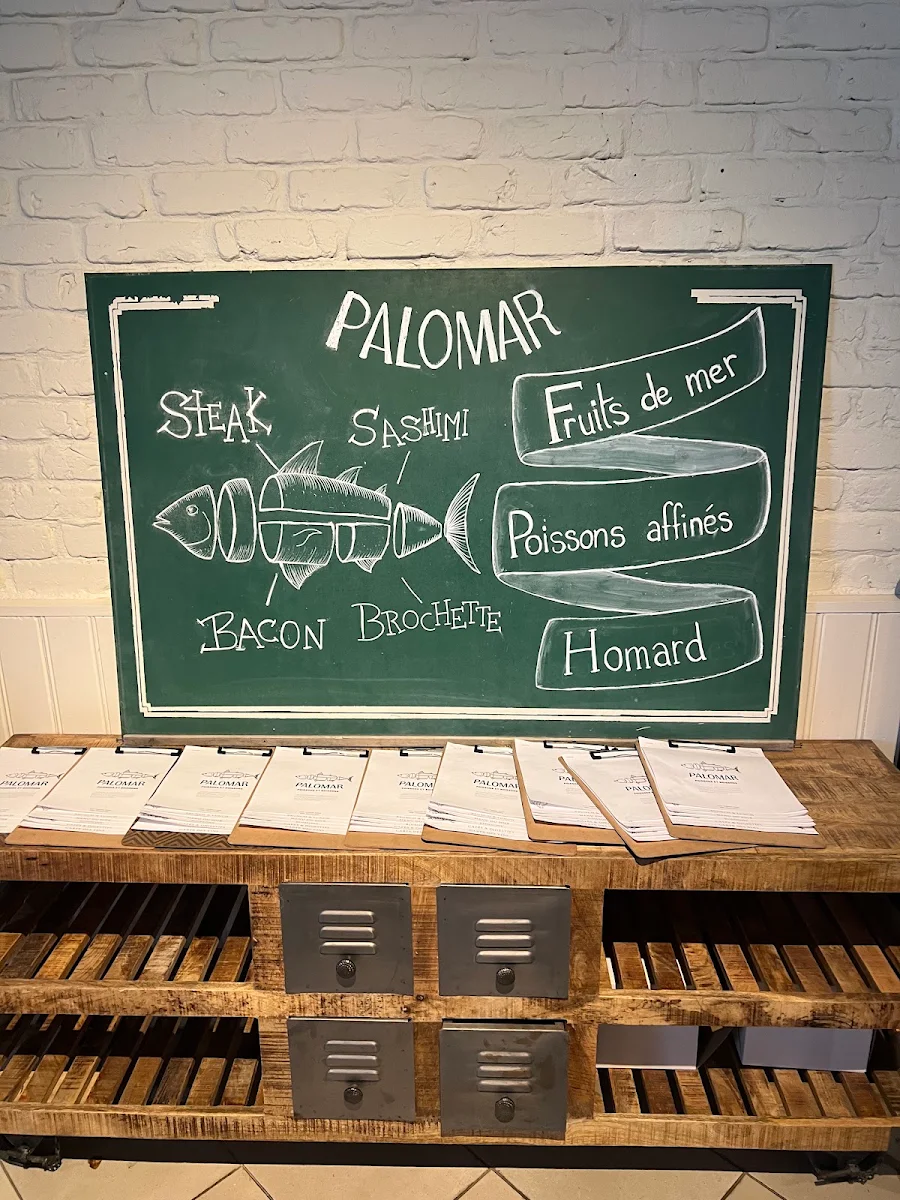 PALOMAR
STEAK
SASHIMI
BACON
BROCHETTE
Fruits de mer
Poissons affinés
Homard
PALOMAR
PALOMAR
PALOMAR
PALOMAR
PALOMAR
PALOMAR